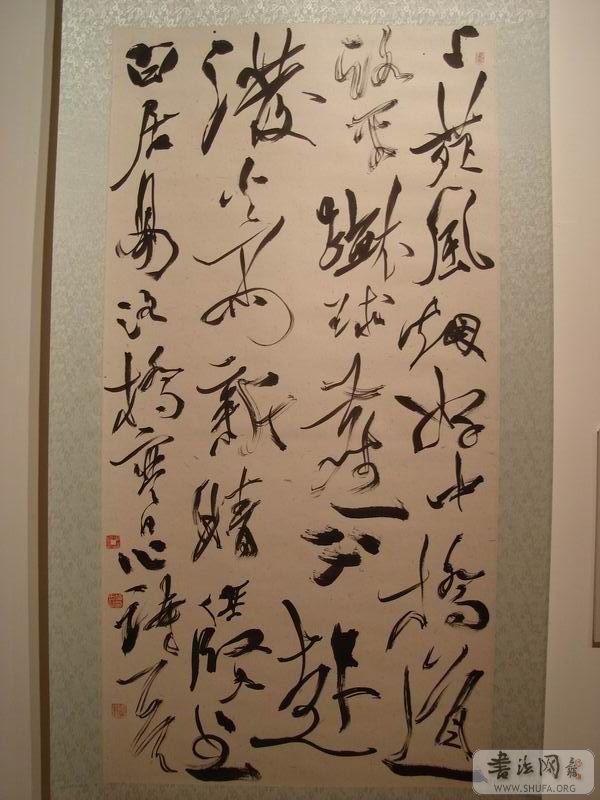 上苑風烟好中橋道
路平蹴球塵不起
潑火雨新晴賢書
白居易洛橋寒日
書法网
WWW.SHUFA.ORG